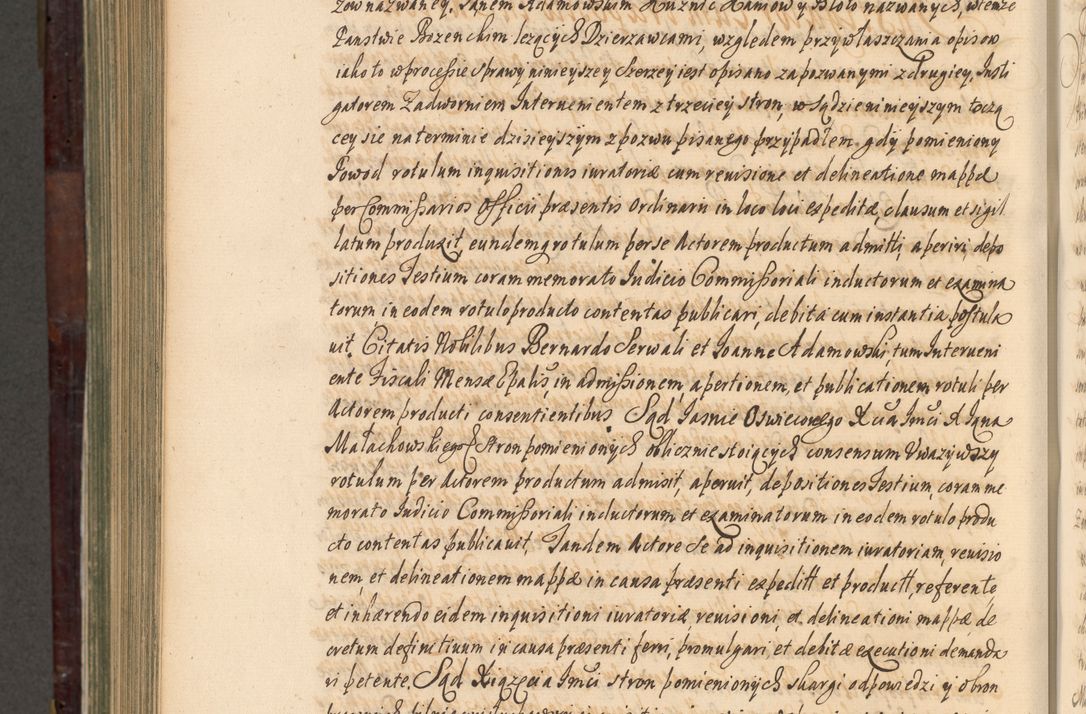 zow nazwaney, Janem Adamowskim Kuznic Kaniow y Błoto nazwanych, wtemże
Panstwie Bozenckim lezących Dzierzawcami, względem przywłaszczania opisow
iako to wprocessie sprawy ninieyszey szerzey iest opisano zapozwanymi zdrugiey, Insti
gatorem Zadworniem Intervenientem ztrzeciey stron, w sądzie ninieyszym toczą
cey sie naterminie dzisieyszym zpozwu pisanego przypadłem, gdy pomieniony
Powod rotulum inquisitionis iuratoriæ cum reuisione et delineatione mappæ
per Commissarios Officii præsentis ordinarii in loco loci expeditæ, clausum et sigil
latum produxit, eundemq rotulum per se Actorem productum admitti, aperiri, depo
sitiones Testium coram memorato Iudicio Commissoriali inductorum et examina
torum in eodem rotulo producto contentas publicari, debita cum instantia postula
uit. Citatis Nobilibus Bernardo Serwali et Ioanne Adamowski tum Interueni
ente Fiscali Mensæ Epalis, in admissionem, apertionem, et publicationem rotuli per
Actorem producti consentientibus. Sąd Jasnie Oswieconego Xcia Jmci X Igna
Małachowskiego Stron pomienionych oblicznie stoiących consensum Uwazywszy
rotulum per Actorem productum admisit, aperuit, depositiones Testium, coram me
morato Iudicio Commissoriali inductorum et examinatorum in eodem rotulo produ
cto contentas publicauit. Tandem Actore se ad inquisitionem iuratoriam, reuisio
nem, et delineationem mappæ in causa præsenti expeditt et productt, referente,
et inhærendo eidem inquisitioni iuratoriæ reuisioni, et delineationi mappæ, de
cretum definitiuum in causa præsenti ferri, promulgari, et debitæ executioni demanda
ri petente. Sąd Xiązęcia Jmci stron pomienionych skargi odpowiedzi y obron